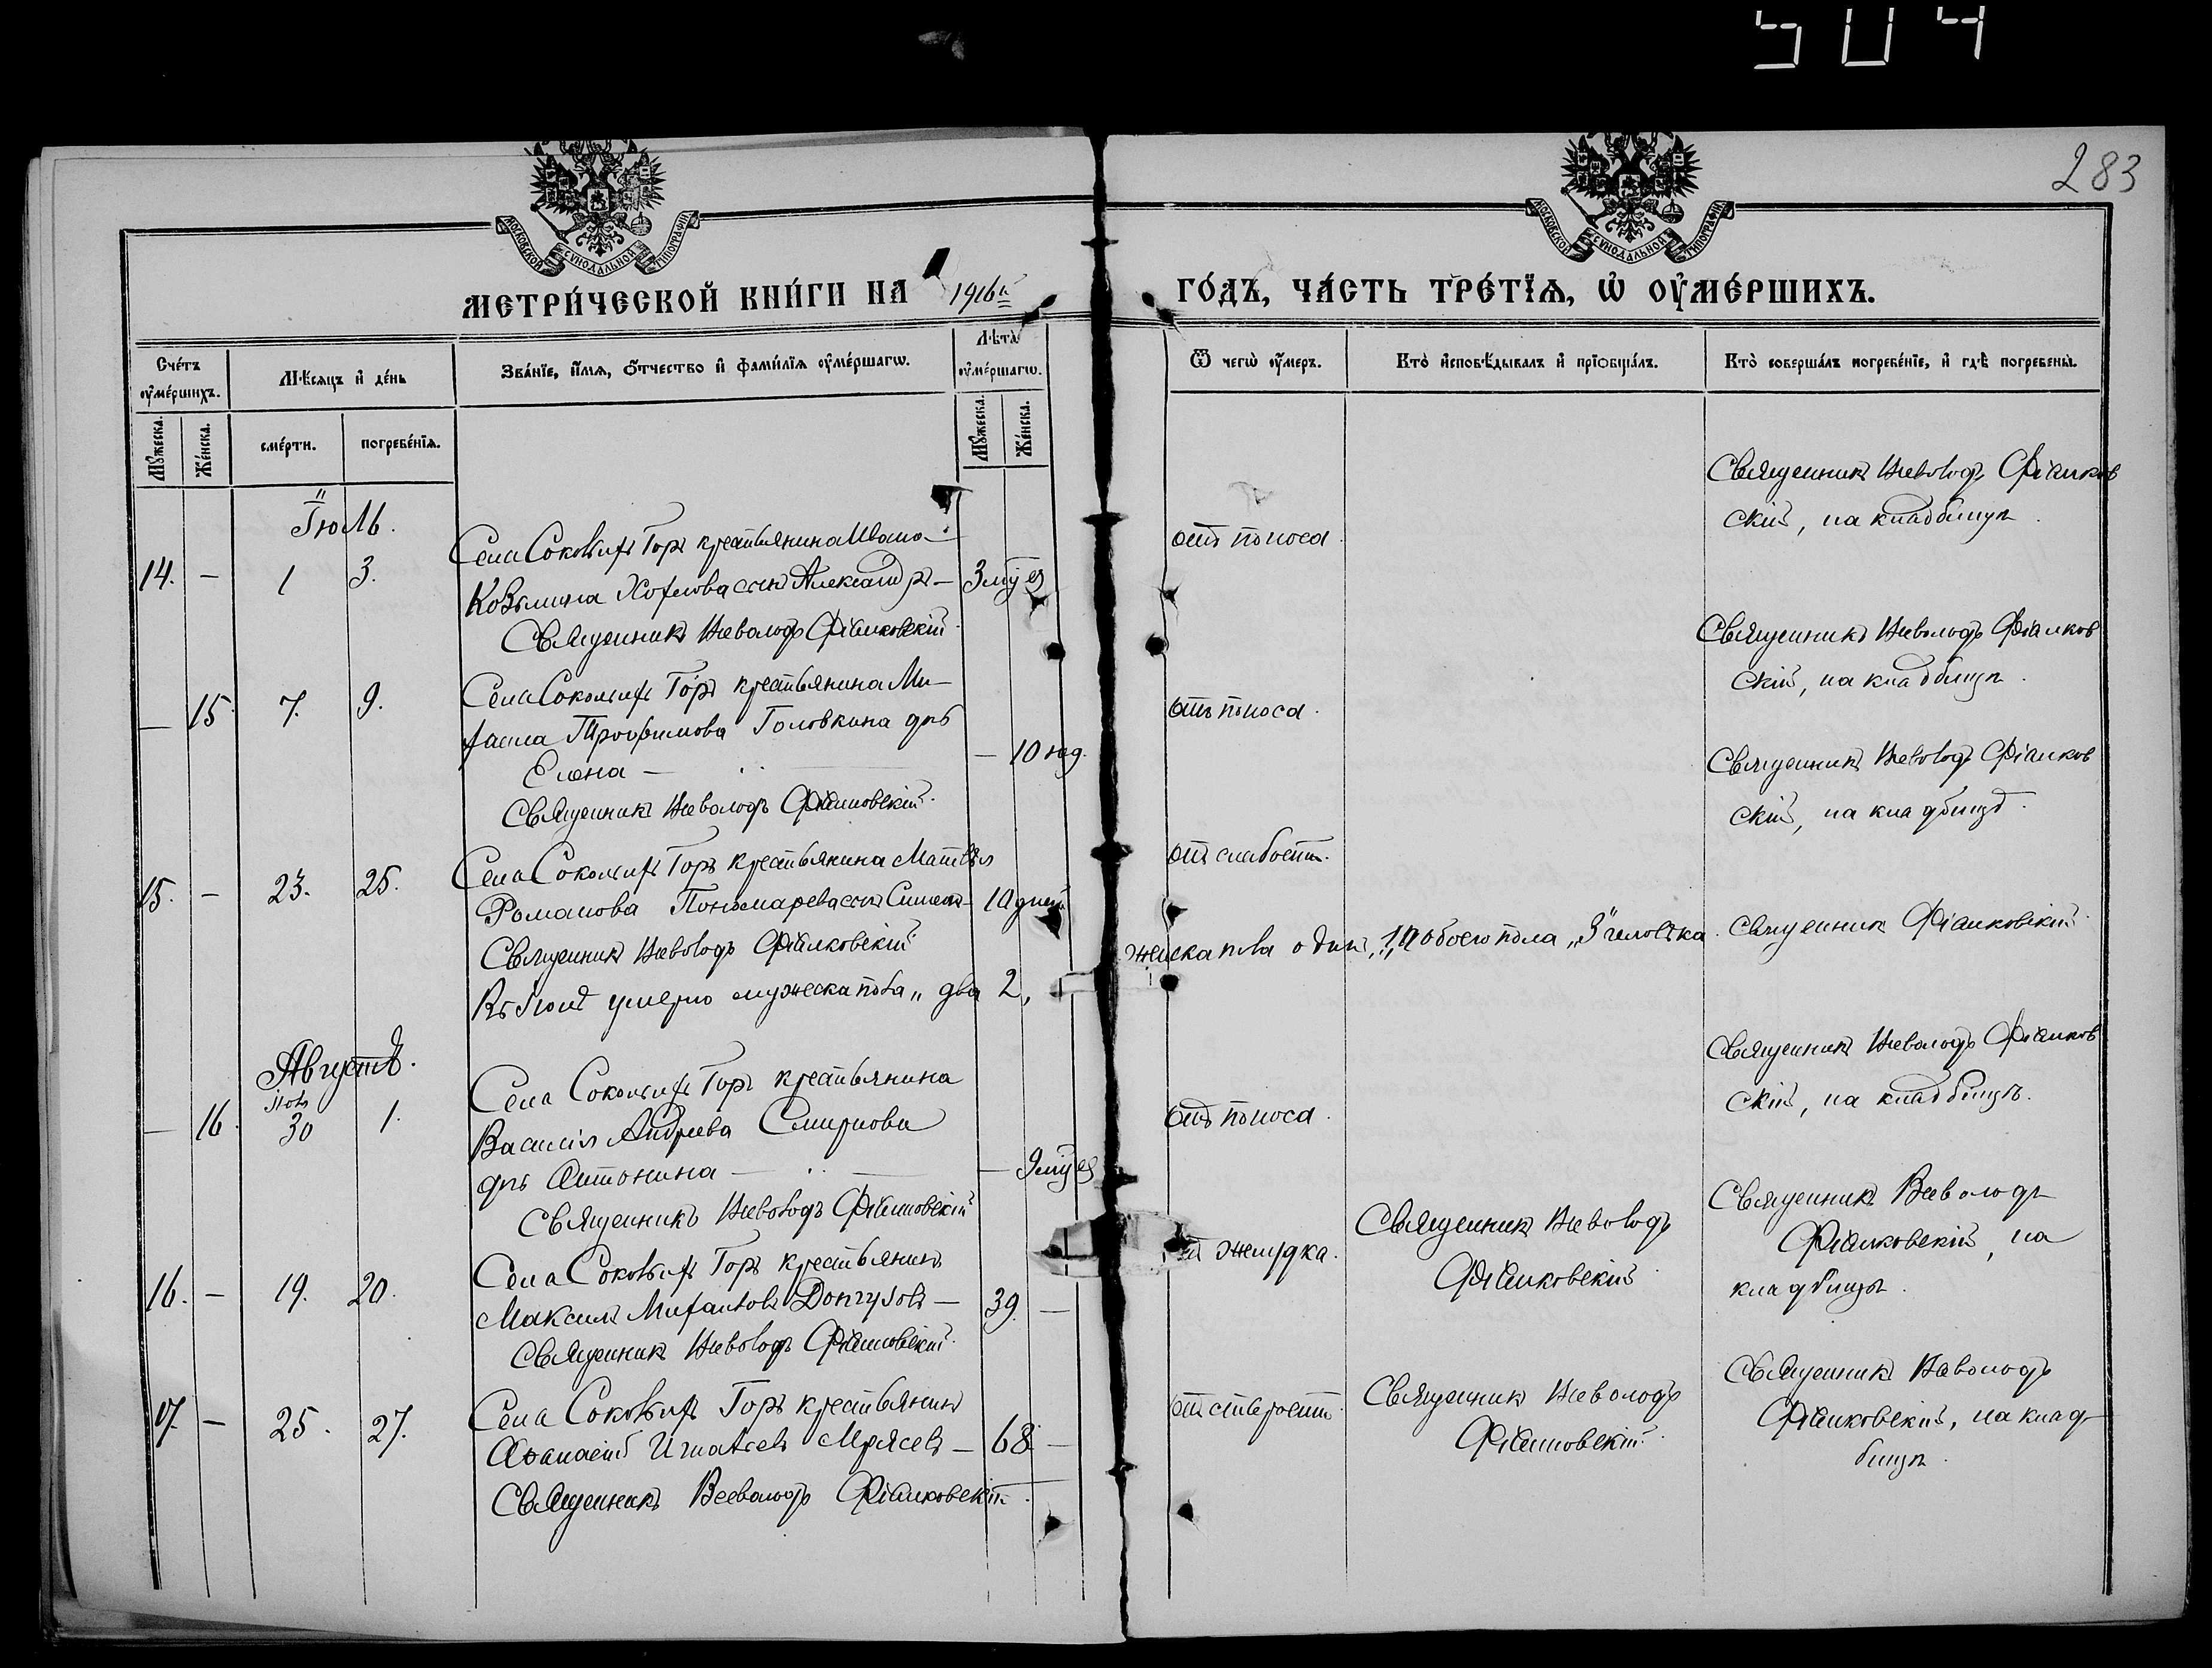 504
283
МОСКОВСКОЙ СУНОДАЛЬНОЙ ТИПОГРАФІИ
МОСКОВСКОЙ СУНОДАЛЬНОЙ ТИПОГРАФІИ
МЕТРИ́ЧЕСКОЙ КНИ́ГИ НА 1916й
ГО́ДЪ, ЧА́СТЬ ТРЕ́ТЇѦ, Ѡ҆ ОУ҆МЕ́РШИХЪ.
Сче́тъ оу҆ме́ршихъ.
Мѣ́сяцъ и҆ де́нь
Зва́нїе, и҆́мѧ, ѻ҆́тчество и҆ фами́лїѧ оу҆ме́ршагѡ.
Лѣ́та оу҆ме́ршагѡ.
Ѿ чегѡ̀ оу҆́меръ.
Кто̀ и҆сповѣ́дывалъ и҆ прїѻбща́лъ.
Кто̀ соверша́лъ погребе́нїе, и҆ гдѣ̀ погребены̀.
Мꙋ́жеска.
Же́нска.
сме́рти.
погребе́нїѧ.
Мꙋ́жеска.
Же́нска.
Іюль.
14. – 1 3.
Села Сокольихъ Горъ крестьянина Ивана
Козьмина сынъ Александръ – 3 мѣц
Священникъ Всеволодъ Фіалковскій
отъ поноса
Священникъ Всеволодъ Фіалков
скій, на кладбищѣ
– 15. 7. 9.
Села Сокольихъ Горъ крестьянина Ми-
хаила Трофимова Головкина дчь
Елена – – 10 нед.
Священникъ Всеволодъ Фіалковскій.
отъ поноса.
Священникъ Всеволодъ Фіалков
скій, на кладбищѣ.
15. – 23. 25.
Села Сокольихъ Горъ крестьянина Матвѣя
Романова Пономарева сынъ Симеон 10 дней
Священникъ Всеволодъ Фіалковскій
отъ слабости.
Священникъ Всеволодъ Фіалков
скій, на кладбищѣ.
Въ Іюлѣ умерло мужеска пола „два 2,
женска пола одинъ „1, а обоего пола „3" человѣка. Священник Фіалковскій
Августъ.
іюль
– 16. 30 1.
Села Сокольихъ Горъ крестьянина
Василія Андреева Смирнова
дчь Антонина – – 9 мѣц
Священникъ Всеволодъ Фіалковскій
отъ поноса.
Священникъ Всеволодъ Фіалков
скій, на кладбищѣ.
16. – 19. 20.
Села Сокольихъ Горъ крестьянинъ
Максимъ Михаиловъ – 39. –
Священникъ Всеволодъ Фіалковскій.
отъ желудка.
Священникъ Всеволодъ
Фіалковскій
Священникъ Всеволодъ
Фіалковскій, на
кладбищѣ.
17. – 25. 27.
Села Сокольихъ Горъ крестьянинъ
Аѳанасій Игнатьевъ Мрясевъ – 68 –
Священникъ Всеволодъ Фіалковскій.
отъ старости.
Священникъ Всеволодъ
Фіалковскій.
Священникъ Всеволодъ
Фіалковскій, на клад-
бищѣ.